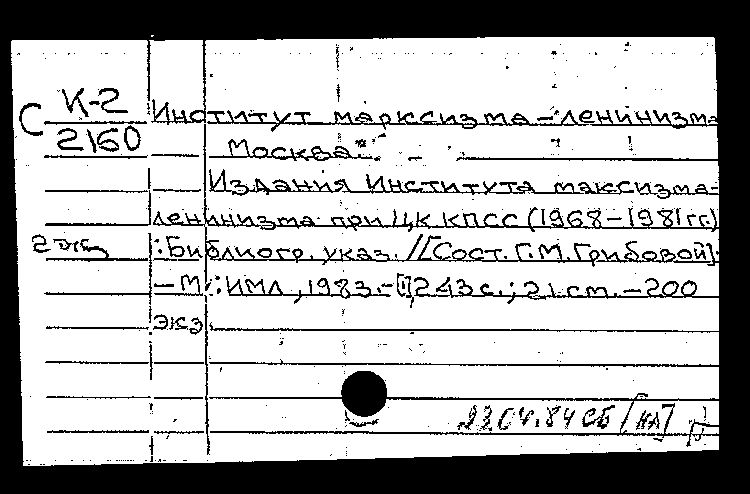 С К-2
2160
Институт марксизма-ленинизма
Москва.
Издания Института максизма-
ленинизма при ЦК КПСС (1968-1981гг.)
2 экз
:Библиогр. указ. /[Сост. Г.М.Грибовой].
-М.:ИМЛ,1983.-[1]243с.;21см.-200
экз.
22.04.84 СБ [КЛ]